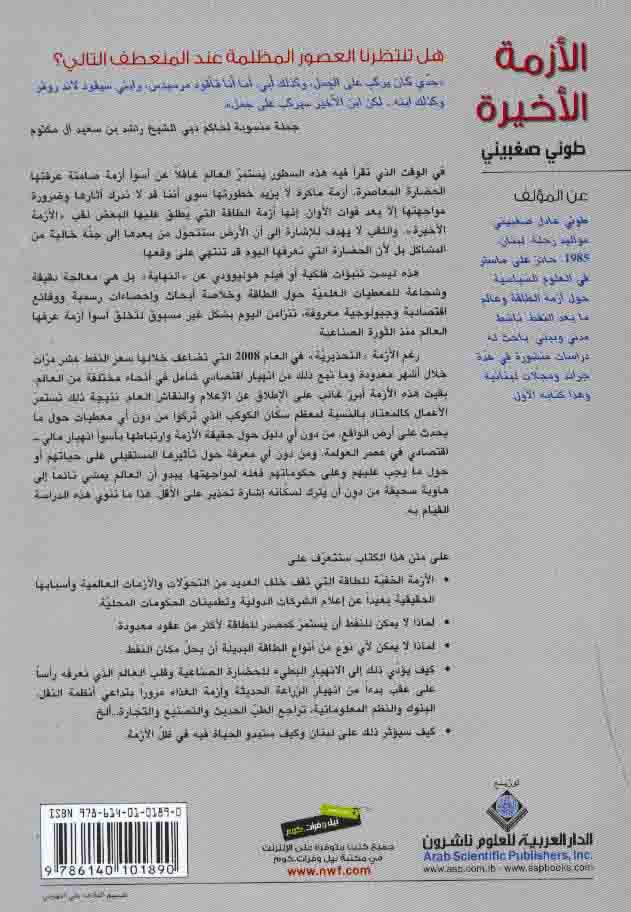 الأزمة
الأخيرة
طوني صغبيني
عن المؤلف
طوني عادل صغبيني
مواليد زحلة، لبنان،
1985. حائز على ماستر
في العلوم السياسية
حول أزمة الطاقة وعالم
ما بعد النفط. ناشط
مدني وبيئي. باحث له
دراسات منشورة في عدة
جرائد ومجلات لبنانية
وهذا كتابه الأول.
هل تنتظرنا العصور المظلمة عند المنعطف التالي؟
«جدّي كان يركب على الجمل، وكذلك أبي، أما أنا فأقود مرسيدس، وابني سيقود لاند روفر
وكذلك ابنه .. لكن ابن الأخير سيركب على جمل».
جملة منسوبة لحاكم دبي الشيخ راشد بن سعيد آل مكتوم
في الوقت الذي تقرأ فيه هذه السطور يستمرّ العالم غافلاً عن أسوأ أزمة صامتة عرفتها
الحضارة المعاصرة. أزمة ماكرة لا يزيد خطورتها سوى أننا قد لا ندرك آثارها وضرورة
مواجهتها إلا بعد فوات الأوان. إنها أزمة الطاقة التي يُطلق عليها البعض لقب «الأزمة
الأخيرة». واللقب لا يهدف للإشارة إلى أن الأرض ستتحوّل من بعدها إلى جنّة خالية من
المشاكل بل لأن الحضارة التي نعرفها اليوم قد تنتهي على وقعها.
هذه ليست تنبّؤات فلكية أو فيلم هوليوودي عن «النهاية» بل هي معالجة دقيقة
وشجاعة للمعطيات العلميّة حول الطاقة وخلاصة أبحاث وإحصاءات رسمية ووقائع
اقتصادية وجيولوجية معروفة، تتزامن اليوم بشكل غير مسبوق لتخلق أسوأ أزمة عرفها
العالم منذ الثورة الصناعية.
رغم الأزمة «التحذيريّة» في العام 2008 التي تضاعف خلالها سعر النفط عشر مرّات
خلال أشهر معدودة وما تبع ذلك من انهيار اقتصادي شامل في أنحاء مختلفة من العالم،
بقيت هذه الأزمة أبرز غائب على الإطلاق عن الإعلام والنقاش العام. نتيجة ذلك تستمرّ
الأعمال كالمعتاد بالنسبة لمعظم سكّان الكوكب الذي تُركوا من دون أي معطيات حول ما
يحدث على أرض الواقع، من دون أي دليل حول حقيقة الأزمة وارتباطها بأسوأ انهيار مالي –
اقتصادي في عصر العولمة. ومن دون أي معرفة حول تأثيرها المستقبلي على حياتهم أو
حول ما يجب عليهم وعلى حكوماتهم فعله لمواجهتها يبدو أن العالم يمشي نائماً إلى
هاوية سحيقة من دون أن يترك لسكّانه إشارة تحذير على الأقل. هذا ما تنوي هذه الدراسة
القيام به.
على متن هذا الكتاب ستتعرّف على
• الأزمة الخفيّة للطاقة التي تقف خلف العديد من التحوّلات والأزمات العالمية وأسبابها
الحقيقية بعيداً عن إعلام الشركات الدوليّة وتطمينات الحكومات المحليّة.
• لماذا لا يمكن للنفط أن يستمرّ كمصدر للطاقة لأكثر من عقود معدودة.
• لماذا لا يمكن لأي نوع من أنواع الطاقة البديلة أن يحلّ مكان النفط.
• كيف يؤدّي ذلك إلى الانهيار البطيء للحضارة الصناعية وقلب العالم الذي نعرفه رأساً
على عقب بدءاً من انهيار الزراعة الحديثة وأزمة الغذاء مروراً بتداعي أنظمة النقل،
البنوك والنظم المعلوماتية، تراجع الطبّ الحديث والتصنيع والتجارة...الخ.
• كيف سيؤثر ذلك على لبنان وكيف ستبدو الحياة فيه في ظلّ الأزمة.
توزيع
الدار العربية للعلوم ناشرون
Arab Scientific Publishers, Inc.
www.asp.com.lb - www.aspbooks.com
نيل وفرات.كوم
جميع كتبنا متوفرة على الإنترنت
في مكتبة نيل وفرات.كوم
www.nwf.com
ISBN 978-614-01-0189-0
9 786140 101890
تصميم الغلاف: علي القهوجي